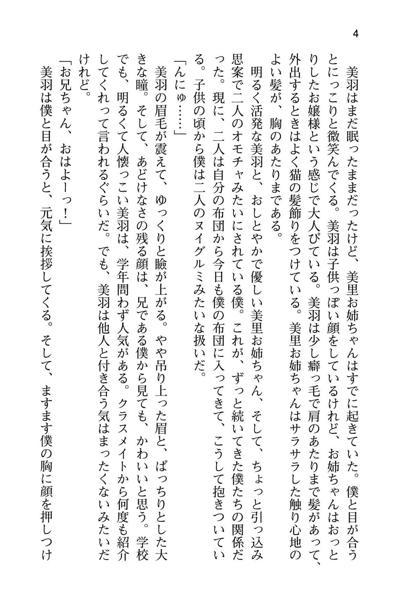 4
美羽はまだ眠ったままだったけど、美里お姉ちゃんはすでに起きていた。僕と目が合う
とにっこりと微笑んでくる。美羽は子供っぽい顔をしているけれど、お姉ちゃんはおっと
りしたお嬢様という感じで大人びている。美羽は少し癖っ毛で肩のあたりまで髪があって、
外出するときはよく猫の髪飾りをつけている。美里お姉ちゃんはサラサラした触り心地の
よい髪が、胸のあたりまである。
明るく活発な美羽と、おしとやかで優しい美里お姉ちゃん、そして、ちょっと引っ込み
思案で二人のオモチャみたいにされている僕。これが、ずっと続いてきた僕たちの関係だ
った。現に、二人は自分の布団から今日も僕の布団に入ってきて、こうして抱きついてい
る。子供の頃から僕は二人のヌイグルミみたいな扱いだ。
「んにゅ……」
美羽の眉毛が震えて、ゆっくりと瞼が上がる。やや吊り上った眉と、ぱっちりとした大
きな瞳。そして、あどけなさの残る顔は、兄である僕から見ても、かわいいと思う。学校
でも、明るくて人懐っこい美羽は、学年問わず人気がある。クラスメイトから何度も紹介
してくれって言われるぐらいだ。でも、美羽は他人と付き合う気はまったくないみたいだ
けれど。
「お兄ちゃん、おはよーっ！」
美羽は僕と目が合うと、元気に挨拶してくる。そして、ますます僕の胸に顔を押しつけ